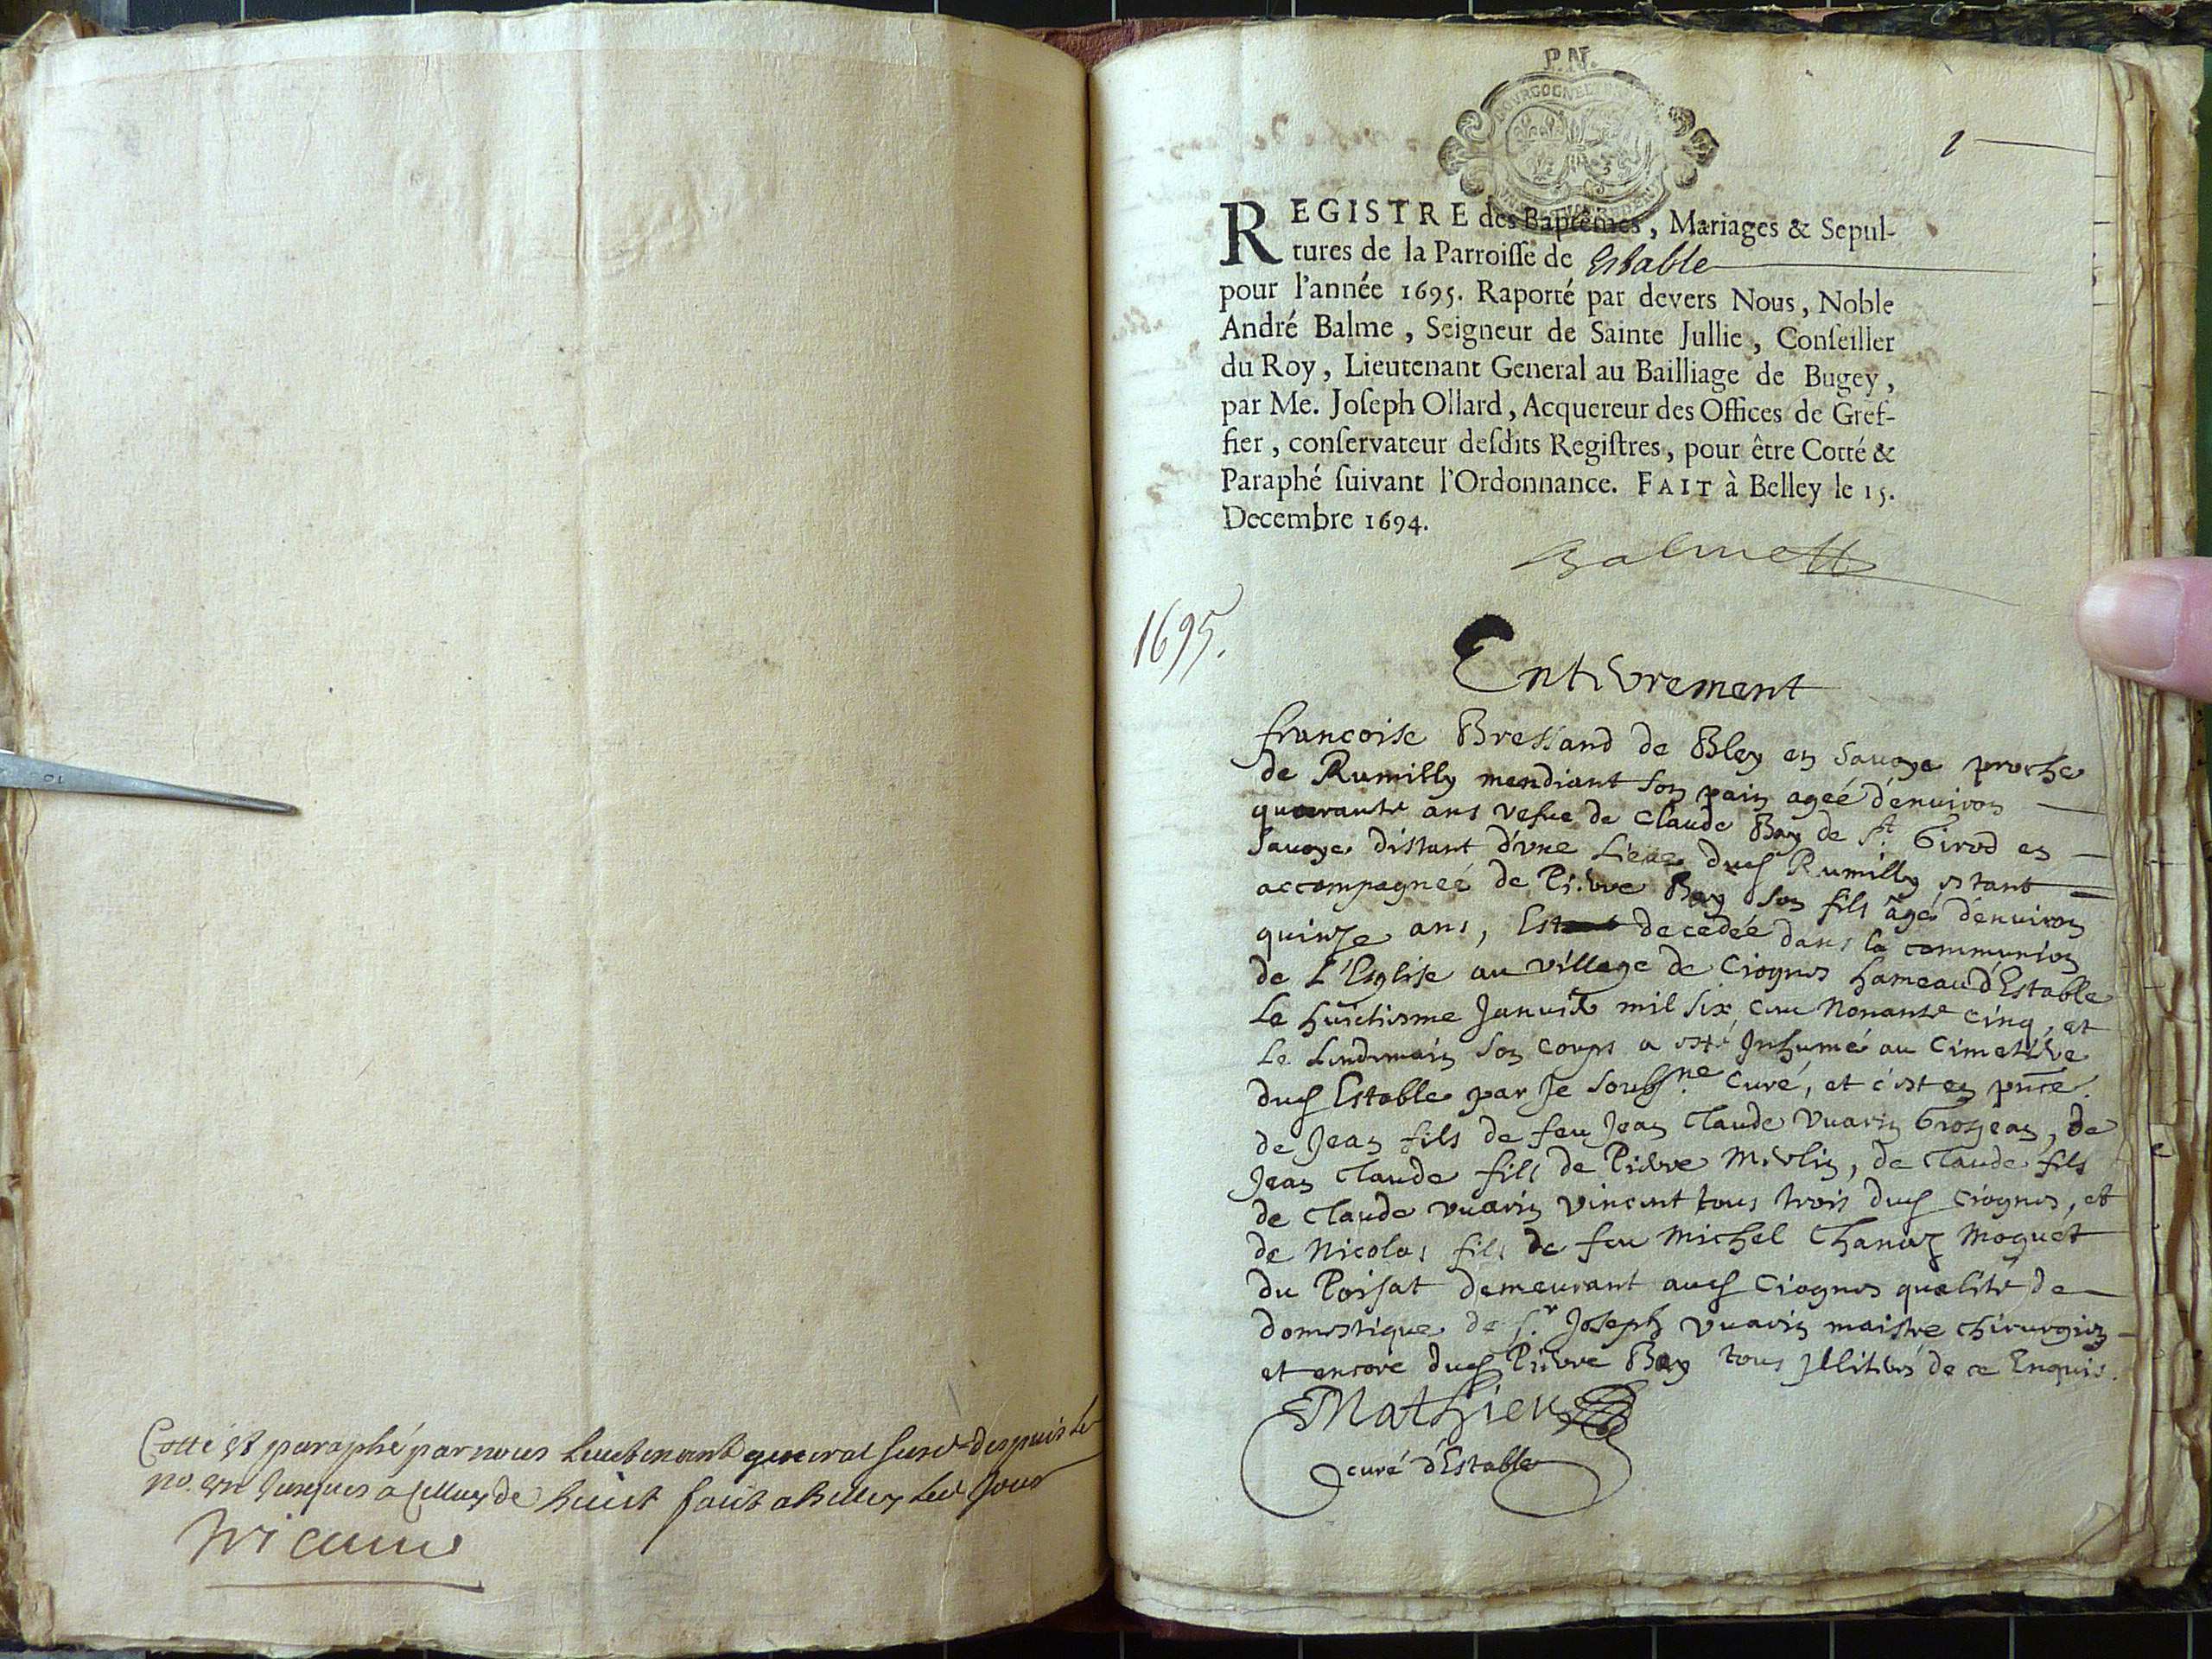 Cotté et paraphé par nous Lieutenant general susd. despuis le
no. un jusques a celluy de huict fait a Belley led. jour
P.N.
1
REGISTRE des Baptêmes, Mariages & Sepul-
tures de la Parroisse de Estable
pour l'année 1695. Raporté par devers Nous, Noble
André Balme, Seigneur de Sainte Jullie, Conseiller
du Roy, Lieutenant General au Bailliage de Bugey,
par Me. Joseph Ollard, Acquereur des Offices de Gref-
fier, conservateur desdits Registres, pour être Cotté &
Paraphé suivant l'Ordonnance. FAIT à Belley le 15.
Decembre 1694.
Balme
1695.
Enterrement
francoise Bressand de Bley en Savoye proche
de Rumilly mendiant son pain ageé d'environ
quarante ans vefue de Claude Bay de St. Girod en
Savoye distant d'vne Lieue dud. Rumilly estant
accompagneé de Pierre Bay son fils âgé d'environ
quinze ans, Est decedeé dans la communion
de L'Esglise au village de Ciognes hameau d'Estable
Le huictiesme Januier mil six cens Nonante cinq, et
Le Lendemain son corps a esté Inhumé au Cimetiere
dud Estable par Je soubsne. Curé, et c'est en pnce.
de Jean fils de feu Jean Claude Vuarin Grosjean, de
Jean Claude fils de Pierre Merlin, de Claude fils
de Claude vuarin Vincent tous trois dud Ciognes, et
de Nicolas fils de feu Michel Chanaz Moguet
du Poisat demeurant aud Ciognes qualité de
domestique de Sr. Joseph Vuarin maistre chirurgien
et encore dud Pierre Bay tous Jlliterés de ce Enquis.
Mathieu
curé d'Estable